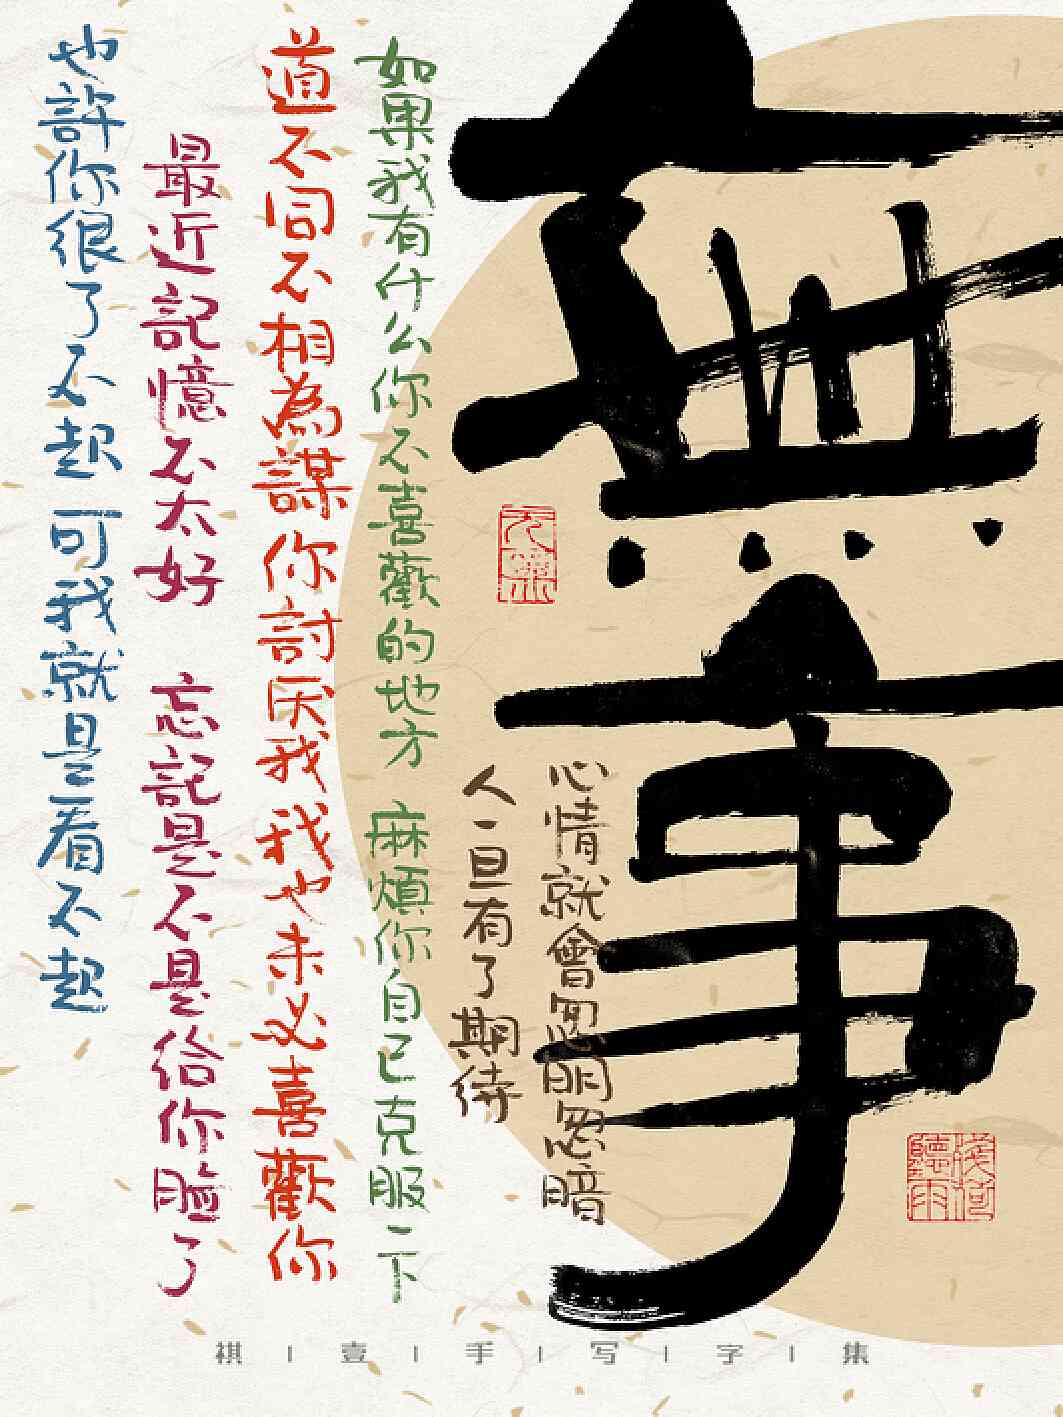 無事
也許你很了不起 可我就是看不起
最近記憶不太好 忘記是不是給你脸了
道不同不相為謀 你討厌我我也未必喜歡你
如果我有什么你不喜歡的地方 麻煩你自己克服一下
人一旦有了期待
心情就會忽明忽暗
祺|壹|手|写|字|集